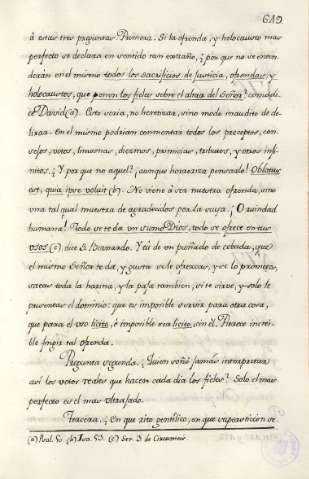 619
à estas tres preguntas Primera. Si la ofrenda, y holocausto mas
perfecto se declara en sentido tan extraño, ¿por que no se enten
derán en el mismo todos los sacrificios de justicia, ofrendas, y
holocaustos, que ponen los fieles sobre el altar del Señor? como di-
ce David (a). Esto seria, no heretizar, sino modo inaudito de de-
lirar. En el mismo podrian commentar todos los preceptos, con-
sejos, votos, limosnas, diezmos, primicias, tributos, y otros infi-
nitos. ¿Y por que no aquel? ¡aunque horroriza pensarlo! Oblatus
est, quia ipse voluit (b). No viene à ser nuestra ofrenda, sino
una tal qual muestra de agradecidos por la suya. ¡O ruindad
humana! Todo se te da un sumo Dios, todo se ofrece en tus
usos (c) dice S. Bernardo. Y tu de un puñado de cebada, que
el mismo Señor te da, y gusta se le ofrezcas, y se lo prometes,
sacas toda la harina, y la paja tambien, si te sirve, y solo le
presentas el dominio: que es imposible servir para otra cosa,
que para el uso licito, è imposible sea licito sin él. Parece increi-
ble fingir tal ofrenda.
Pregunta segunda. ¿Quien soñó jamás interpretar
asi los votos reales que hacen cada dia los fieles? Solo el mas
perfecto es el mas ultrajado.
Tercera. ¿En que rito gentilico, en que supersticion se
(a) Psal. 50. (b) Isa. 53. (c) Ser. 3 de Circuncis.